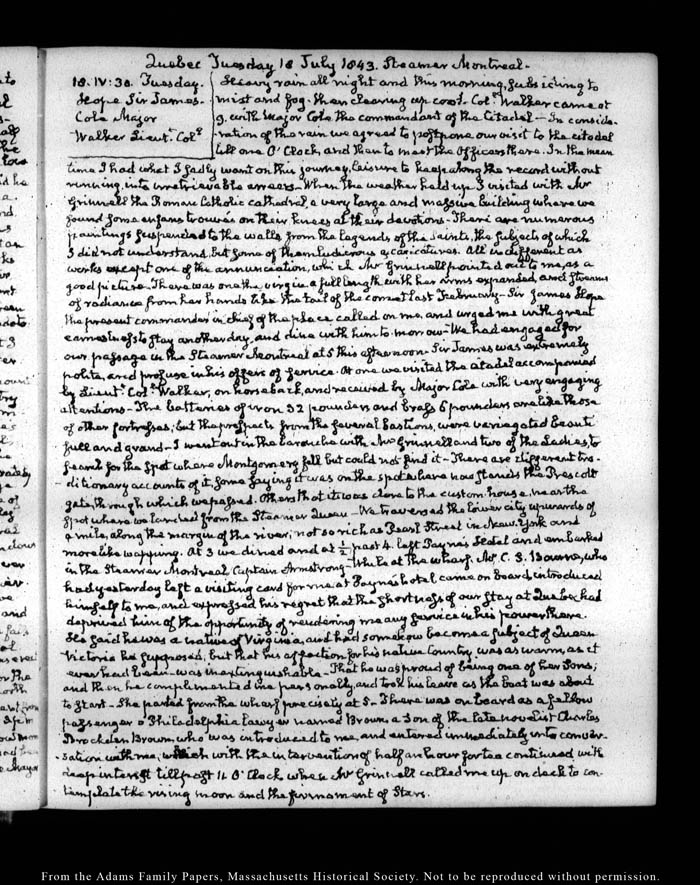 Quebec Tuesday 18 July 1843. Steamer Montreal.
18. IV:30. Tuesday.
Hope Sir James.
Cole Major
Walker Lieut.t Col.l
Heavy rain all night and this morning, subsiding to
mist and fog. then clearing up cool. Col.l Walker came at
9. with Major Cole the commandant of the Citadel — In conside-
-ration of the rain we agreed to postpone our visit to the citadel
till one O'Clock, and then to meet the Officers there. In the mean
time I had what I sadly want on this journey, leisure to keep along the record without
running into irretrievable arrears. When the weather held up I visited with Mr
Grinnell the Roman Catholic cathedral, a very large and massive building where we
found some enfans trouvés on their knees at their devotions. There are numerous
paintings suspended to the walls, from the legends of the Saints, the subjects of which
I did not understand, but some of them ludicrous caricatures. All indifferent as
works except one of the annunciation, which Mr Grinnell pointed out to me, as a
good picture. There was one the virgin a full length with her arms expanded, and streams
of radiance from her hands like the tail of the comet last February — Sir James Hope
the present commander in chief of the place called on me, and urged me with great
earnestness to stay another day, and dine with him to-morrow — We had engaged for
our passage in the Steamer Montreal at 5 this afternoon. Sir James was extremely
polite, and profuse in his offers of service. At one we visited the citadel accompanied
by Lieut.t Col.l Walker, on horseback, and received by Major Cole with very engaging
attentions — The batteries of iron 32 pounders and brass 6 pounders are like those
of other fortresses; but the prospects from the several bastions, were variegated beauti
full and grand — I went out in the barouche with Mr Grinnell and two of the Ladies to
search for the spot where Montgomery fell but could not find it — There are different tra-
-ditionary accounts of it, some saying it was on the spot where now stands the Prescott
gate, through which we passed. Others that it was close to the custom house, near the
spot where we landed from the Steamer Queen — We traversed the lower city upwards of
a mile, along the margin of the river; not so rich as Pearl Street in New-York and
more like Wapping. At 3 we dined and at ½ past 4. left Payne's Hotel and embarked
in the Steamer Montreal Captain Armstrong — While at the wharf, Mr C. S. Bourne, who
had yesterday left a visiting card for me at Payne's hotel came on board, introduced
himself to me, and expressed his regret that the shortness of our stay at Quebec had
deprived him of the opportunity of rendering me any service in his power there.
He said he was a native of Virginia, and had somehow become a subject of Queen
Victoria he supposed, but that his affection for his native Country was as warm, as it
ever had been — was inextinguishable — That he was proud of being one of her Sons;
and then he complemented me personally, and took his leave as the boat was about
to start — She parted from the wharf precisely at 5 — There was on board as a fellow
passenger a Philadelphia lawyer named Brown a Son of the late novelist Charles
Brockden Brown, who was introduced to me, and entered immediately into conver-
-sation with me, which with the intervention of half an hour for tea continued with
deep interest till past 11 O'Clock when Mr Grinnell called me up on deck to con-
template the rising moon and the firmament of Stars.
From the Adams Family Papers, Massachusetts Historical Society. Not to be reproduced without permission.